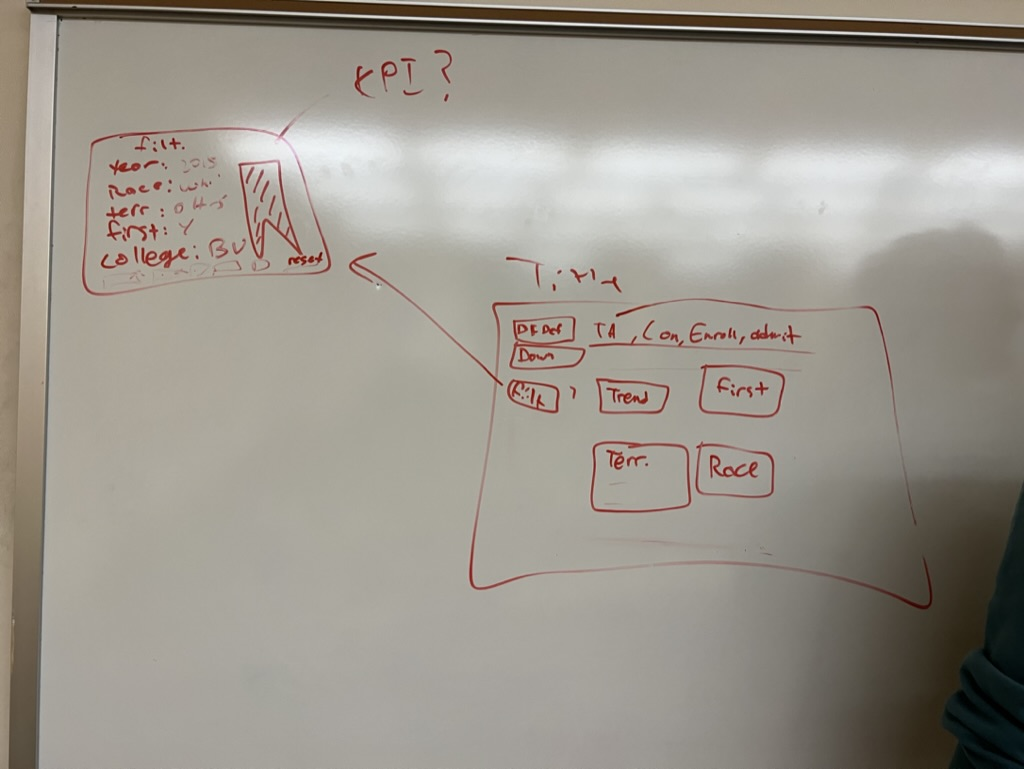 KPI?
filt.
year: 2015
Race: whi
terr:
first: Y
college: BU
reset
Title
TA, Con, Enroll, admit
Down
Filt
Trend
First
Terr.
Race